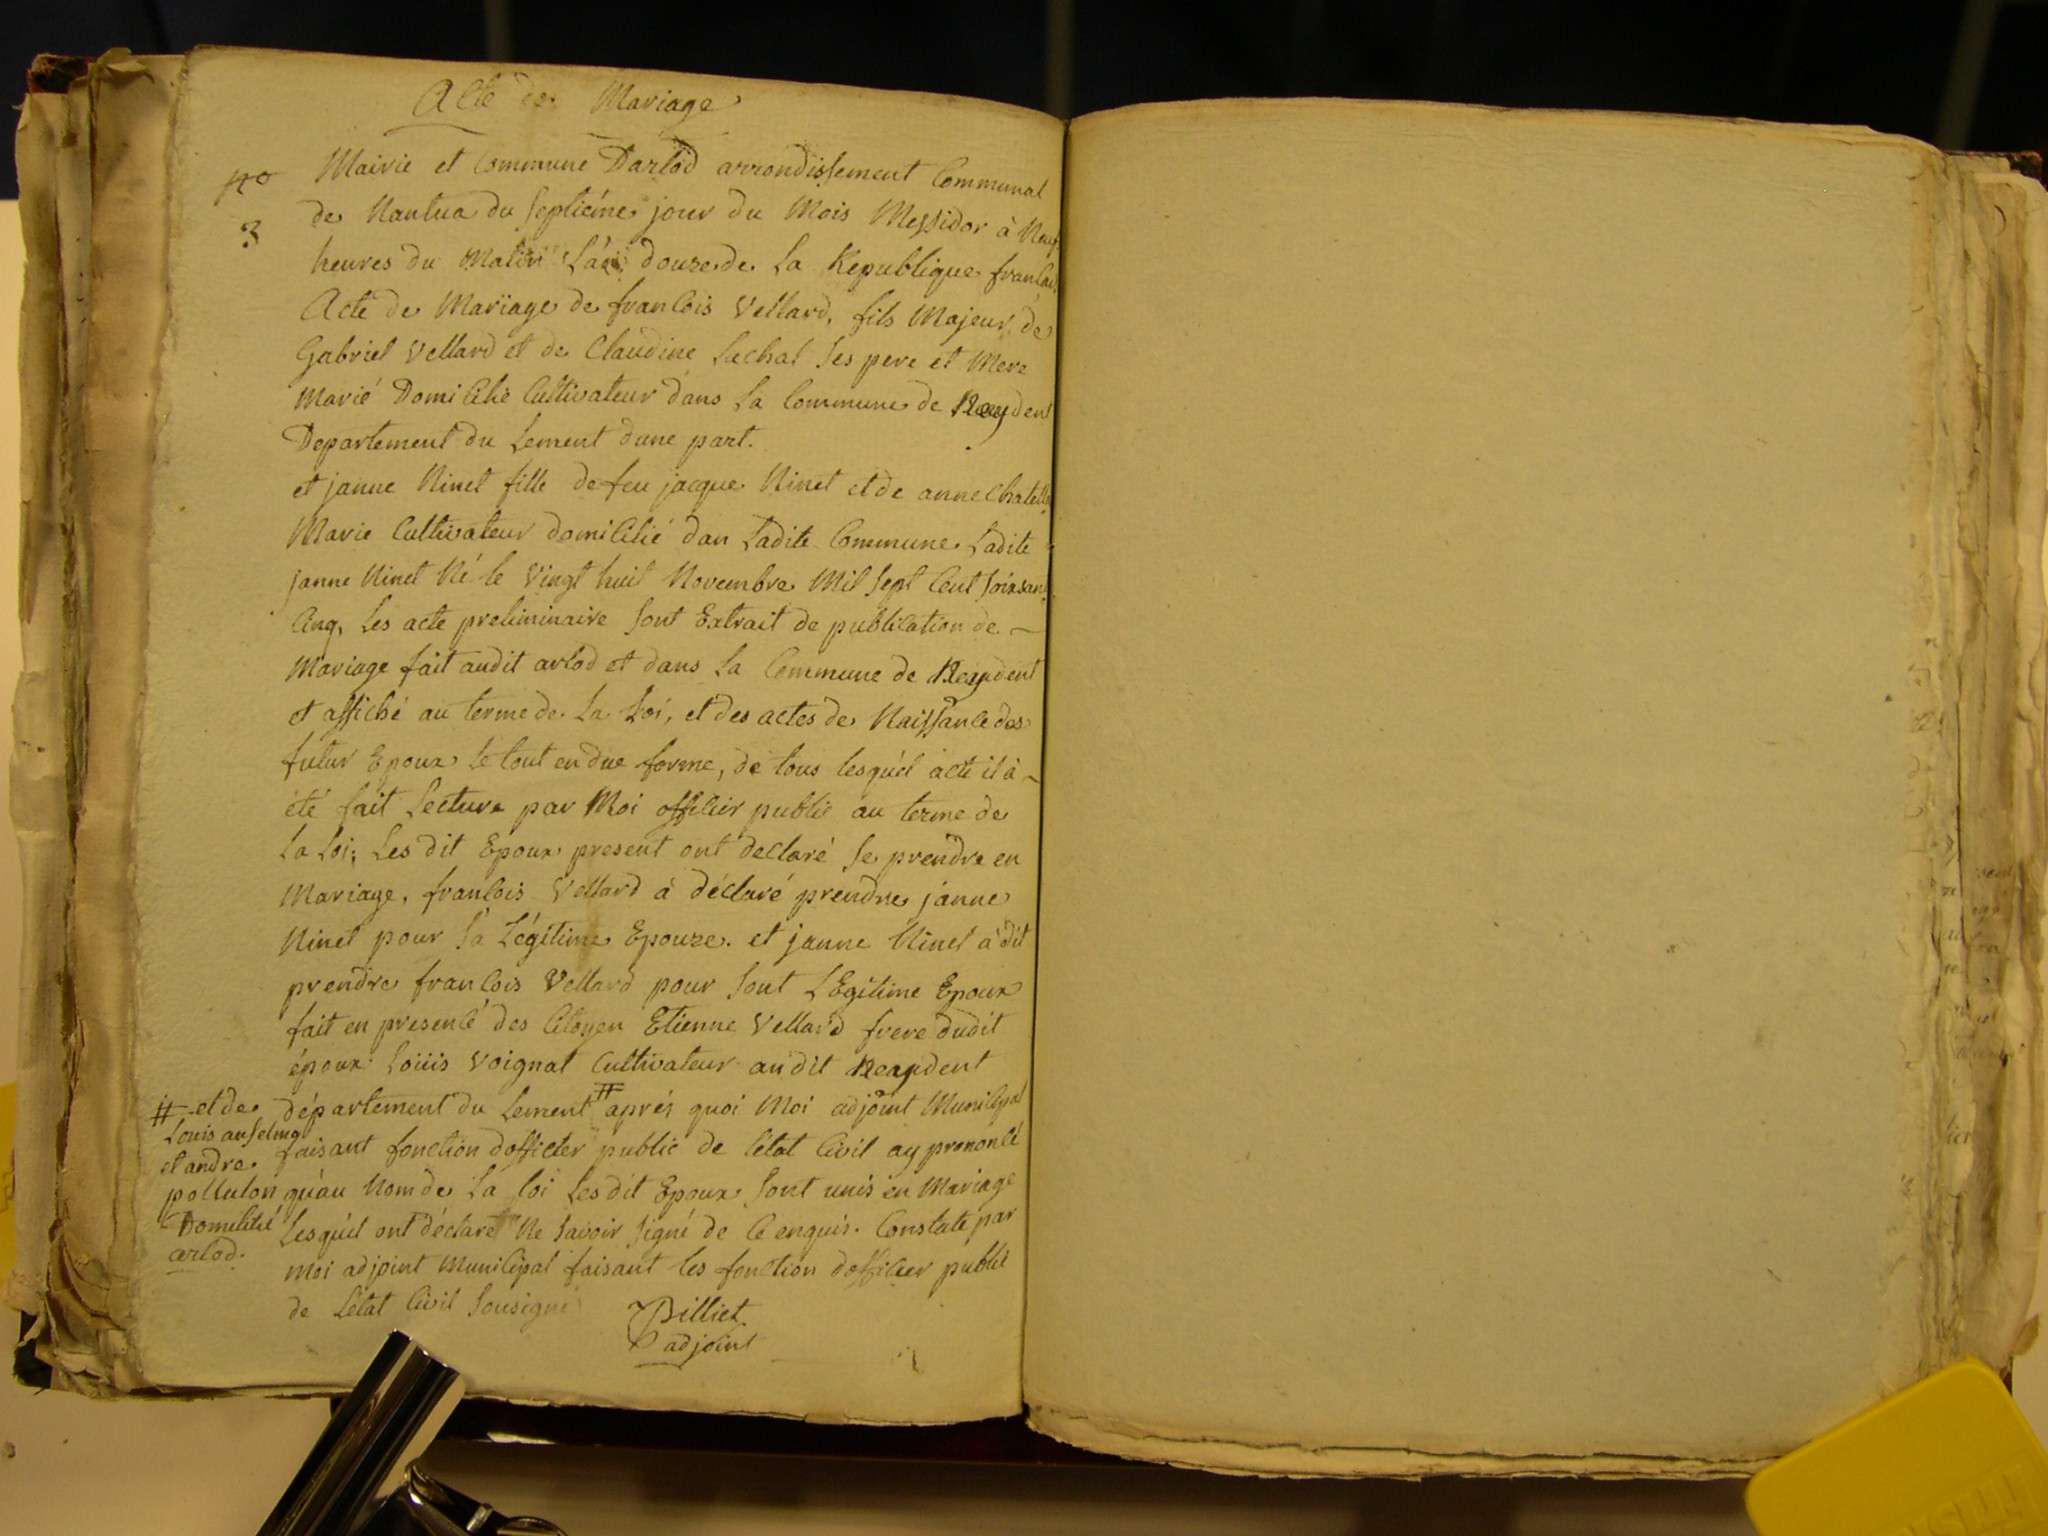 Acte de Mariage
no
3
Mairie et Commune Darlod arrondissement Communal
de Nantua du Septiéme jour du Mois Messidor à Neuf
heures du Matin L'an douze de La Republique francai
Acte de Mariage de francois Vellard, fils Majeur de
Gabriel Vellard et de Claudine Lachal Ses pere et Mere
Marié Domicilié Cultivateur dans La Commune de
Departement du Lement dune part.
et janne Ninet fille de feu jacque Ninet et de anne Chatell
Marie Cultivateur domicilié dan Ladite Commune Ladite
janne Ninet Né le Vingt huit Novembre Mil Sept Cent Soixsan
Cinq, Les acte preliminaire Sont Extrait de publication de
Mariage fait audit arlod et dans La Commune de
et affiché au terme de La Loi, et des actes de Naissance des
futur Epoux le tout en due forme, de tous lesquel acte il à
été fait Lecture par Moi officier public au terme de
La Loi; Les dit Epoux present ont declaré Se prendre en
Mariage, francois Vellard à déclaré prendre janne
Ninet pour Sa Légitime Epouze. et janne Ninet à dit
prendre francois Vellard pour Sont LEgitime Epoux
fait en presencé des Citoyen Etienne Vellard frere dudit
époux Louis Voignat Cultivateur audit
département du Lement # aprés quoi Moi adjoint Municipal
faisant fonction dofficier public de létat Civil ay prononcé
qu'au Nom de La loi Les dit Epoux Sont unis en Mariage
Lesquel ont déclaré Ne Savoir Signé de Ce enquis. Constaté par
moi adjoint Municipal faisant les fonction dofficier public
de Létat Civil Sousigné
Billiet
adjoint
# et de
Louis anselme
et andre
pollulon
Domicilié
arlod.